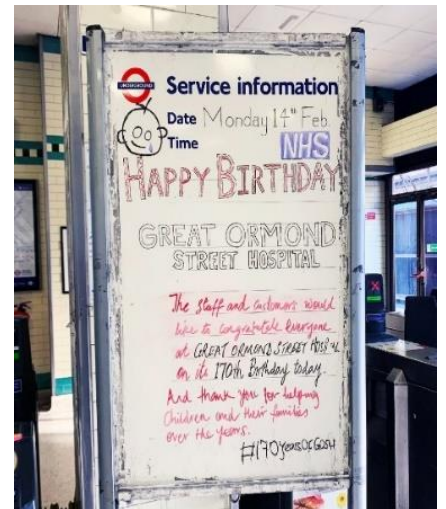 UNDERGROUND
Service information
Date Monday 14th Feb.
Time
NHS
HAPPY BIRTHDAY
GREAT ORMOND
STREET HOSPITAL
The staff and customers would
like to congratulate everyone
at GREAT ORMOND STREET HOSPITAL
on its 170th Birthday today.
And thank you for helping
Children and their families
over the years.
#170yearsOfGOSH